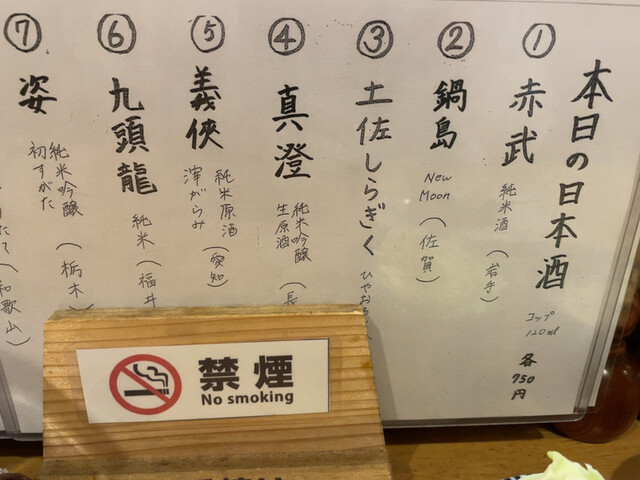 本日の日本酒
コップ
120ml
各
750
円
①
赤武
純米酒
(岩手)
②
鍋島
New
Moon
(佐賀)
③
土佐しらぎく
ひやお
④
真澄
純米吟醸
生原酒
(長
⑤
義侠
純米原酒
滓がらみ
(愛知)
⑥
九頭龍
純米
(福井
⑦
姿
純米吟醸
初すがた
(栃木)
たて(和歌山)
禁煙
No smoking